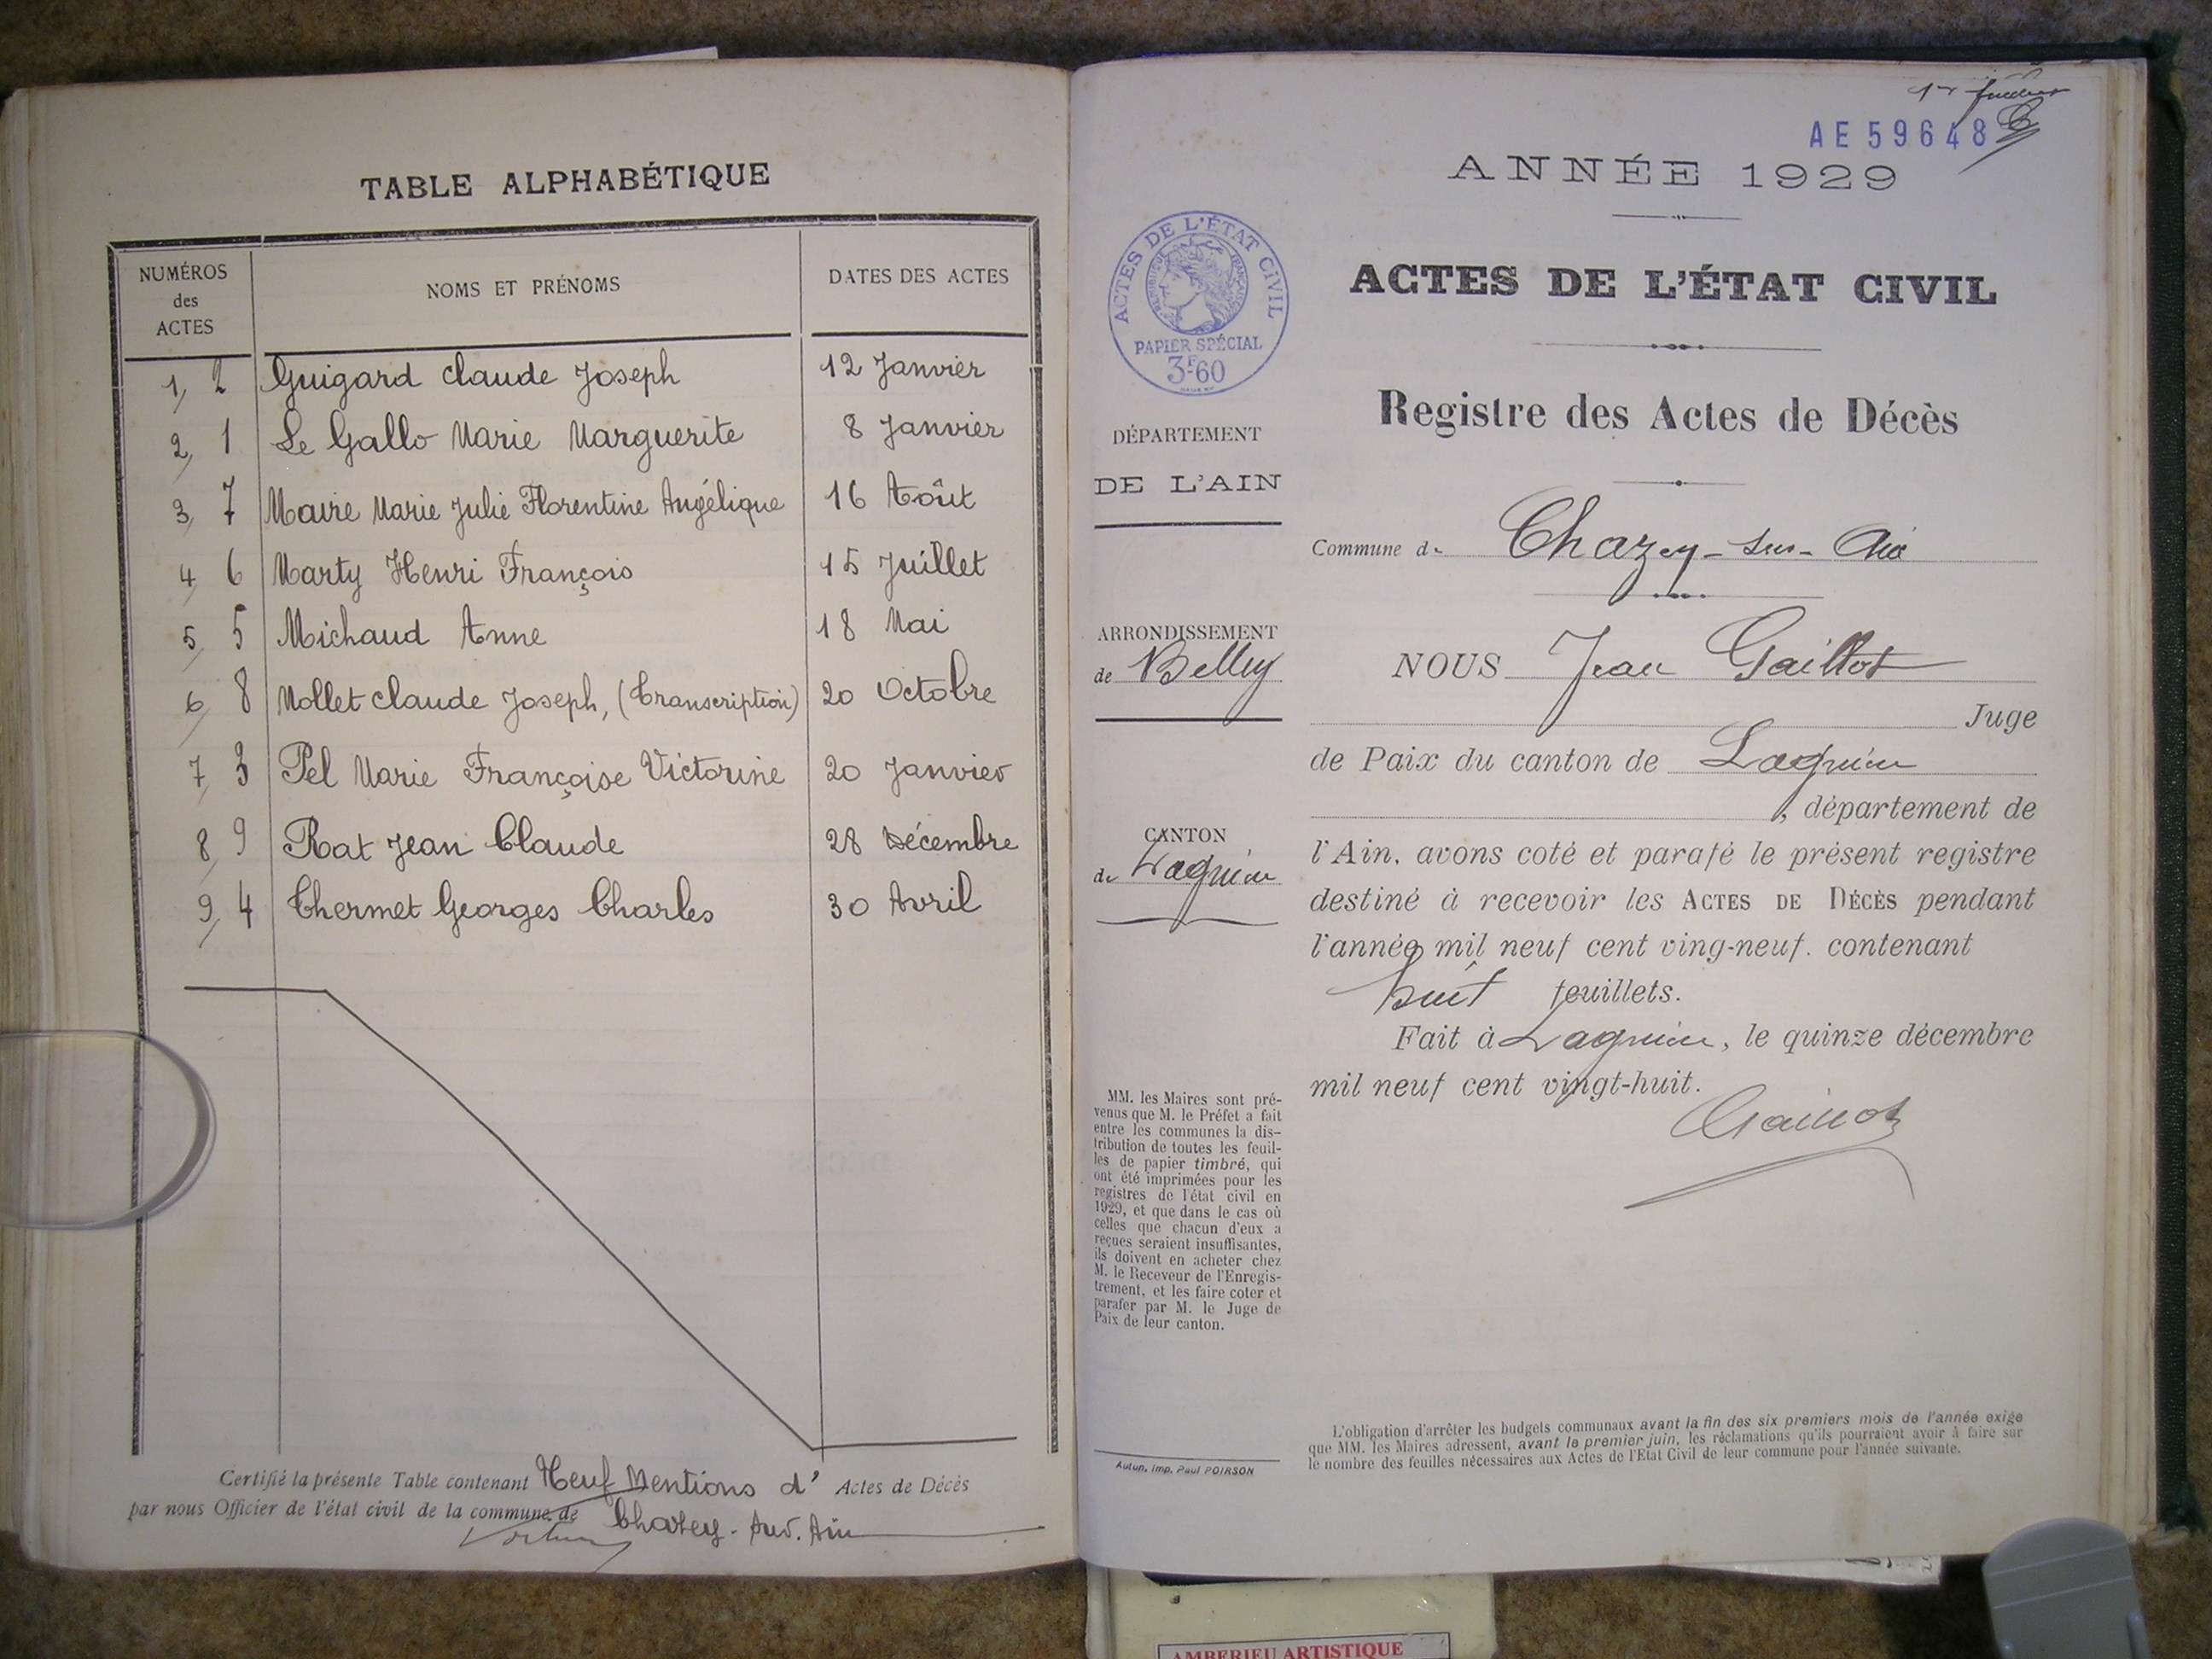 TABLE ALPHABÉTIQUE
NUMÉROS des ACTES NOMS ET PRÉNOMS DATES DES ACTES
1, 2 Guigard Claude Joseph 12 Janvier
2, 1 Le Gallo Marie Marguerite 8 Janvier
3, 7 Maire Marie Julie Florentine Angélique 16 Août
4, 6 Marty Henri François 15 Juillet
5, 5 Michaud Anne 18 Mai
6, 8 Mollet Claude Joseph, (Transcription) 20 Octobre
7, 3 Pel Marie Françoise Victorine 20 Janvier
8, 9 Rat Jean Claude 28 Décembre
9, 4 Thermet Georges Charles 30 Avril
Certifié la présente Table contenant Neuf Mentions d' Actes de Décès
par nous Officier de l'état civil de la commune de Chazey-sur-Ain
1er feuillet
AE 59648
ANNÉE 1929
ACTES DE L'ÉTAT CIVIL
RÉPUBLIQUE FRANÇAISE
PAPIER SPÉCIAL
3F60
ACTES DE L'ÉTAT CIVIL
Registre des Actes de Décès
DÉPARTEMENT
DE L'AIN
Commune de Chazey-sur-Ain
ARRONDISSEMENT
de Belley
NOUS Jean Gaillot
Juge
de Paix du canton de Lagnieu
, département de
CANTON
de Lagnieu
l'Ain, avons coté et parafé le présent registre
destiné à recevoir les ACTES DE DÉCÈS pendant
l'année mil neuf cent ving-neuf. contenant
huit feuillets.
Fait à Lagnieu, le quinze décembre
mil neuf cent vingt-huit.
Gaillot
MM. les Maires sont pré-
venus que M. le Préfet a fait
entre les communes la dis-
tribution de toutes les feuil-
les de papier timbré, qui
ont été imprimées pour les
registres de l'état civil en
1929, et que dans le cas où
celles que chacun d'eux a
reçues seraient insuffisantes,
ils doivent en acheter chez
M. le Receveur de l'Enregis-
trement, et les faire coter et
parafer par M. le Juge de
Paix de leur canton.
Autun, imp. Paul POIRSON
L'obligation d'arrêter les budgets communaux avant la fin des six premiers mois de l'année exige
que MM. les Maires adressent, avant le premier juin, les réclamations qu'ils pourraient avoir à faire sur
le nombre des feuilles nécessaires aux Actes de l'Etat Civil de leur commune pour l'année suivante.
AMBERIEU ARTISTIQUE